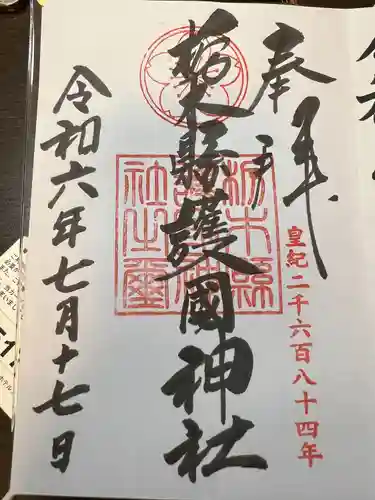 奉拝
皇紀二千六百八十四年
栃木縣護國神社
栃木縣護國神社之璽
令和六年七月十七日